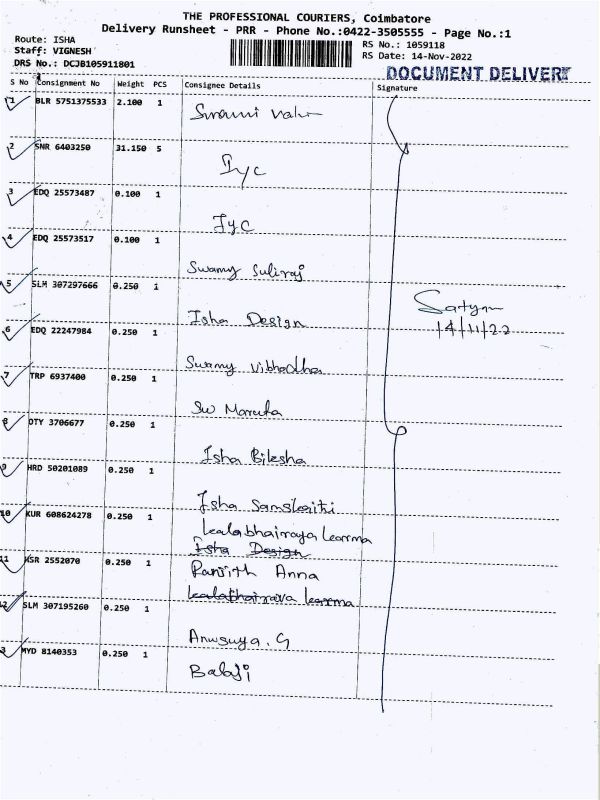 THE PROFESSIONAL COURIERS, Coimbatore
Delivery Runsheet - PRR - Phone No.:0422-3505555 - Page No.:1
Route: ISHA
Staff: VIGNESH
DRS No.: DCJB105911801
RS No.: 1059118
RS Date: 14-Nov-2022
DOCUMENT DELIVERY
S No Consignment No Weight PCS Consignee Details Signature
1 BLR 5751375533 2.100 1 Swami
2 SNR 6403250 31.150 5 Iyc
3 EDQ 25573487 0.100 1 Iyc
4 EDQ 25573517 0.100 1 Swamy
5 SLM 307297666 0.250 1 Isha Design
Satym
14/11/22
6 EDQ 22247984 0.250 1 Swamy Vibhodha
7 TRP 6937400 0.250 1 Sw Maruta
8 OTY 3706677 0.250 1 Isha Biksha
9 HRD 50201089 0.250 1 Isha Samskriti
10 KUR 608624278 0.250 1 kealabhairava karma
Isha Design
11 KSR 2552070 0.250 1 Ranjith Anna
kealabhairava karma
12 SLM 307195260 0.250 1 Anusuya. G
3 MYD 8140353 0.250 1 Balaji